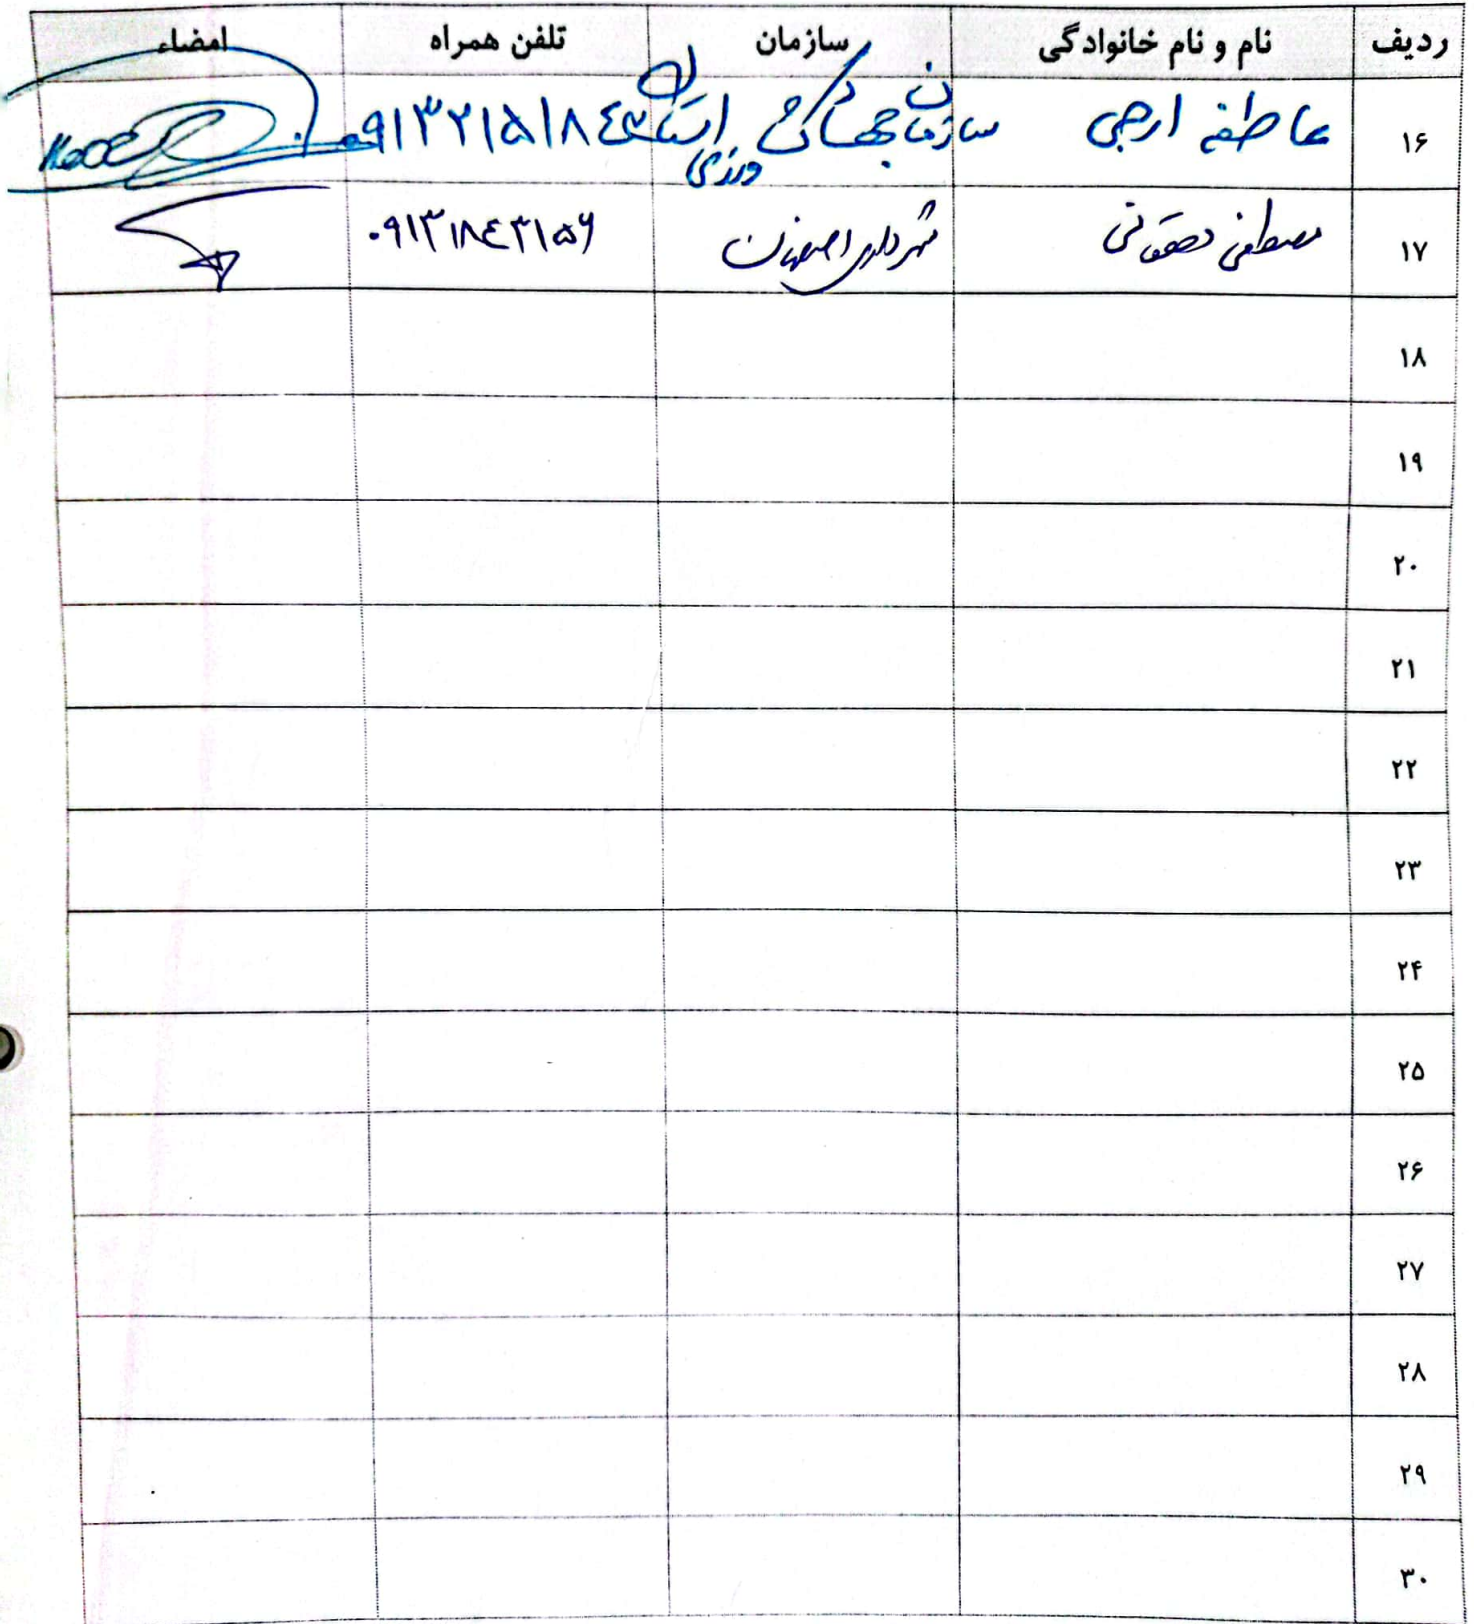 ردیف نام و نام خانوادگی سازمان تلفن همراه امضاء
۱۶ عاطفه ارجی سازمان جهاد کشاورزی استان
۱۷ مصطفی دهقانی شهرداری اصفهان ۰۹۱۳۱۸۴۳۱۵۶
۱۸
۱۹
۲۰
۲۱
۲۲
۲۳
۲۴
۲۵
۲۶
۲۷
۲۸
۲۹
۳۰